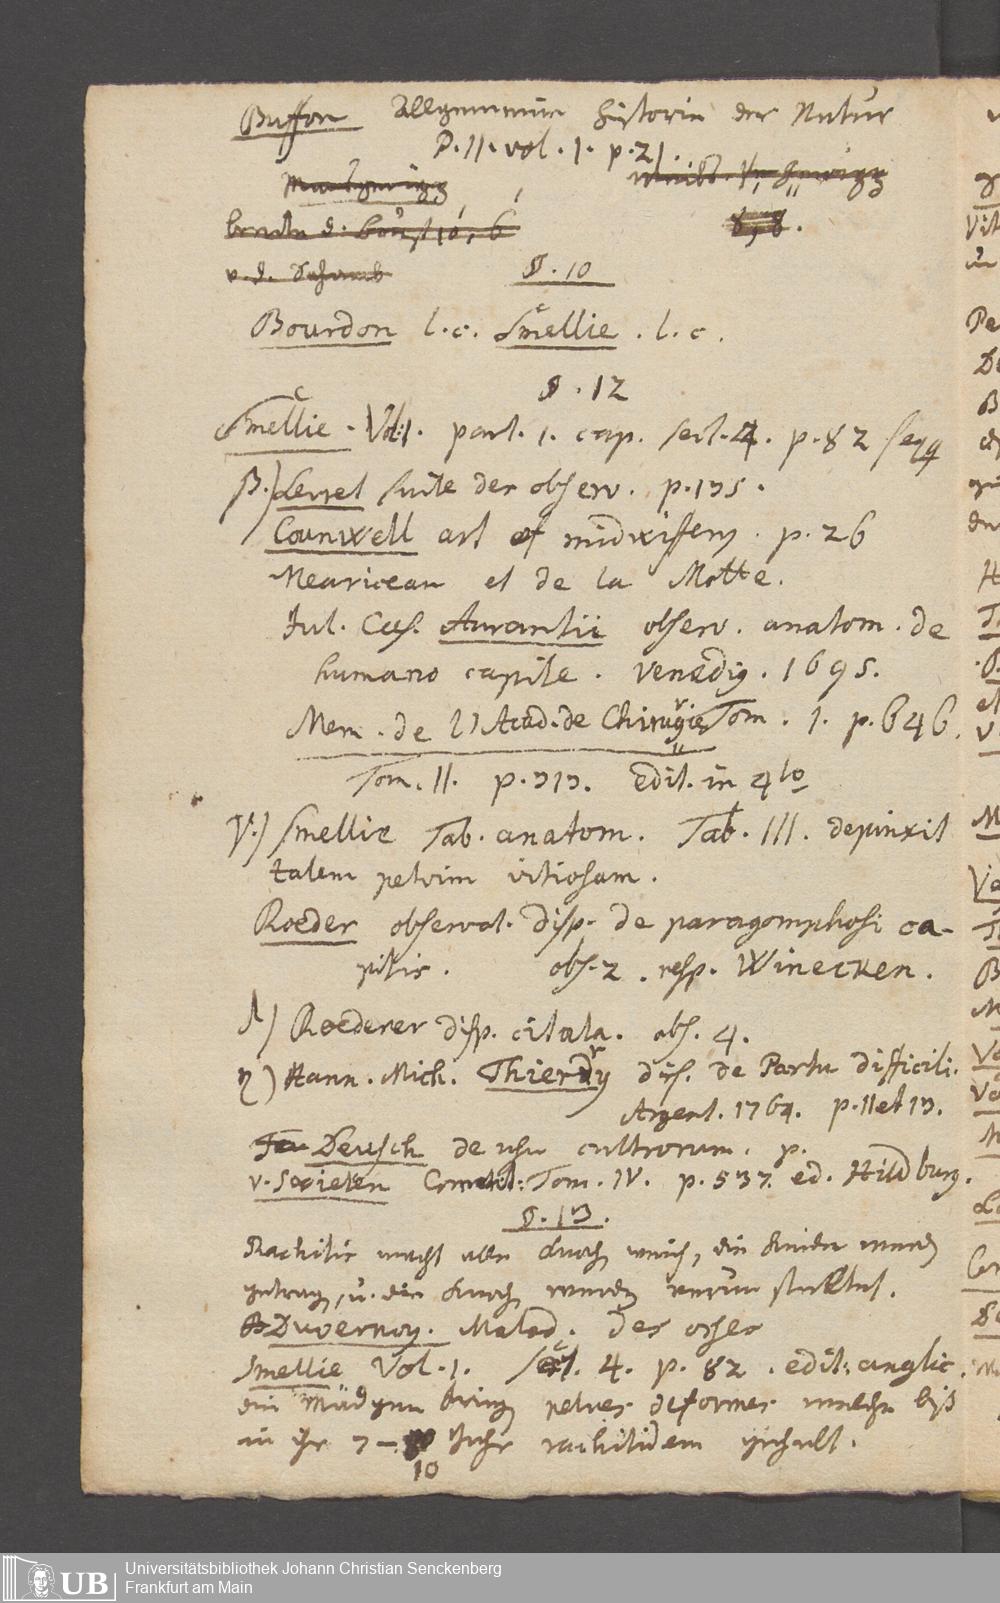 Buffon Allgemeine Historie der Natur
P. II. vol. 1. p. 21.
8, 8.
v. d. Schamb
§. 10
Bourdon l. c. Smellie. l. c.
§. 12
Smellie. Vol. 1. part. 1. cap. sect. 4. p. 82 seqq
β.) Levret suite des observ. p. 135.
Counwell art of midwiffery. p. 26
Meariceau et de la Motte.
Jul. Caes. Aurantii observ. anatom. de
humano capite. Venedig. 1695.
Mem. de l'Acad. de Chirurgie Tom. 1. p. 646.
Tom. II. p. 313. edit. in 4to
γ.) Smellie Tab. anatom. Tab. III. depinxit
talem pelvim vitiosam.
Roeder observat. disp. de paragomphosi ca-
pitis. obs. 2. resp. Winecken.
δ) Roederer disp. citata. obs. 4.
η) Hann. Mich. Thierry diss. de Partu difficili.
Argent. 1764. p. 11 et 13.
Deusch de usu cultrorum. p.
v. Swieten Comment: Tom. IV. p. 537. ed. Hildburg.
§. 13.
Rachitis macht alle Knoch weich, die Kinder werden
getrag, u. die Knoch werden
Duvernoy. Malad. des osses
Smellie Vol. 1. Sect. 4. p. 82. edit: anglic.
die Mädgen kriegen pelves deformes welche biß
in ihr 7 – 10 Jahr rachitidem gehabt.
Universitätsbibliothek Johann Christian Senckenberg
Frankfurt am Main
UB